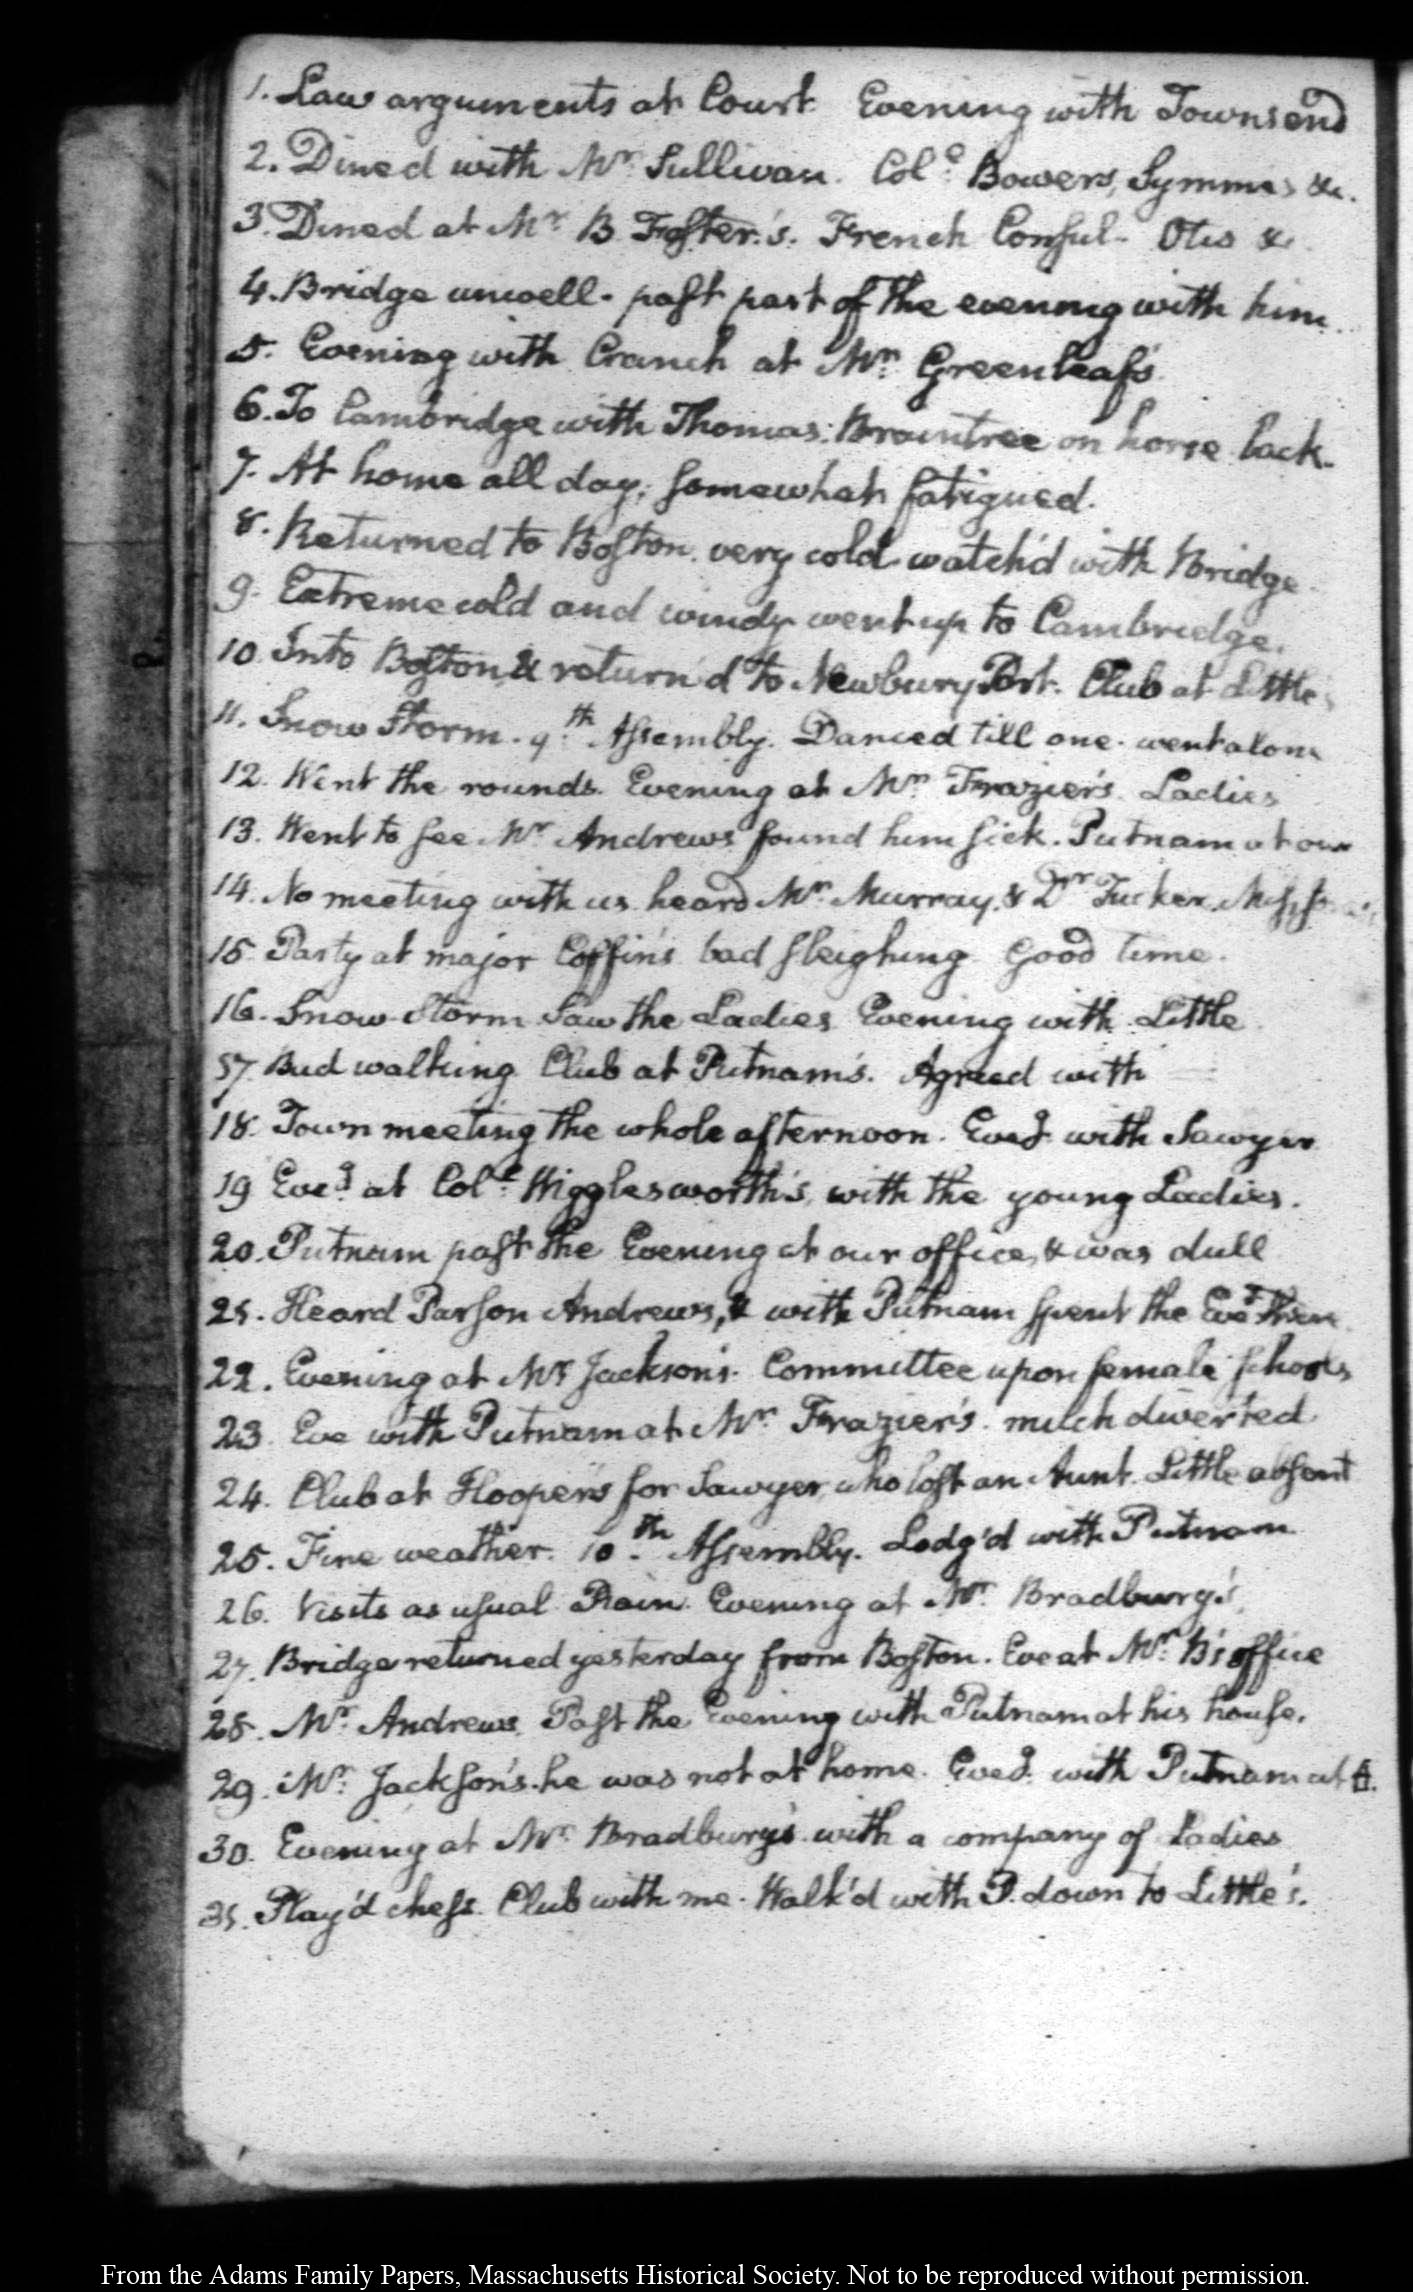 1. Law arguments at Court. Evening with Townsend
2. Dined with Mr. Sullivan. Colo. Bowers, Symmes &c.
3. Dined at Mr. B Foster's. French Consul. Otis &c
4. Bridge unwell. past part of the evening with him.
5. Evening with Cranch at Mr. Greenleaf's
6. To Cambridge with Thomas: Braintree on horse back.
7. At home all day; somewhat fatigued.
8. Returned to Boston. very cold watch'd with Bridge.
9. Extreme cold and windy went up to Cambridge.
10. Into Boston & return'd to Newbury Port. Club at Little's
11. Snow Storm. 9th. Assembly. Danced till one. went alone
12. Went the rounds. Evening at Mr. Frazier's. Ladies
13. Went to see Mr. Andrews found him sick. Putnam at our
14. No meeting with us heard Mr. Murray, & Dr. Tucker.
15. Party at major Coffin's bad sleighing. Good time.
16. Snow Storm Saw the Ladies Evening with Little
17. Bad walking Club at Putnam's. Agreed with
18. Town meeting the whole afternoon. Eveg. with Sawyer
19 Eveg. at Colo. Wigglesworth's, with the young Ladies.
20. Putnam past the Evening at our office, & was dull
21. Heard Parson Andrews, & with Putnam spent the Eveg. there
22. Evening at Mr. Jackson's. Committee upon female schools
23. Eve with Putnam at Mr. Frazier's. much diverted
24. Club at Hooper's for Sawyer, who lost an Aunt. Little absent
25. Fine weather. 10th. Assembly. Lodg'd with Putnam
26. Visits as usual Rain. Evening at Mr. Bradbury's
27. Bridge returned yesterday from Boston. Eve at Mr. B's office
28. Mr. Andrews. Past the Evening with Putnam at his house.
29. Mr. Jackson's. he was not at home. Eveg. with Putnam at
30. Evening at Mr. Bradbury's with a company of Ladies
31. Play'd chess. Club with me. Walk'd with P. down to Little's.
From the Adams Family Papers, Massachusetts Historical Society. Not to be reproduced without permission.